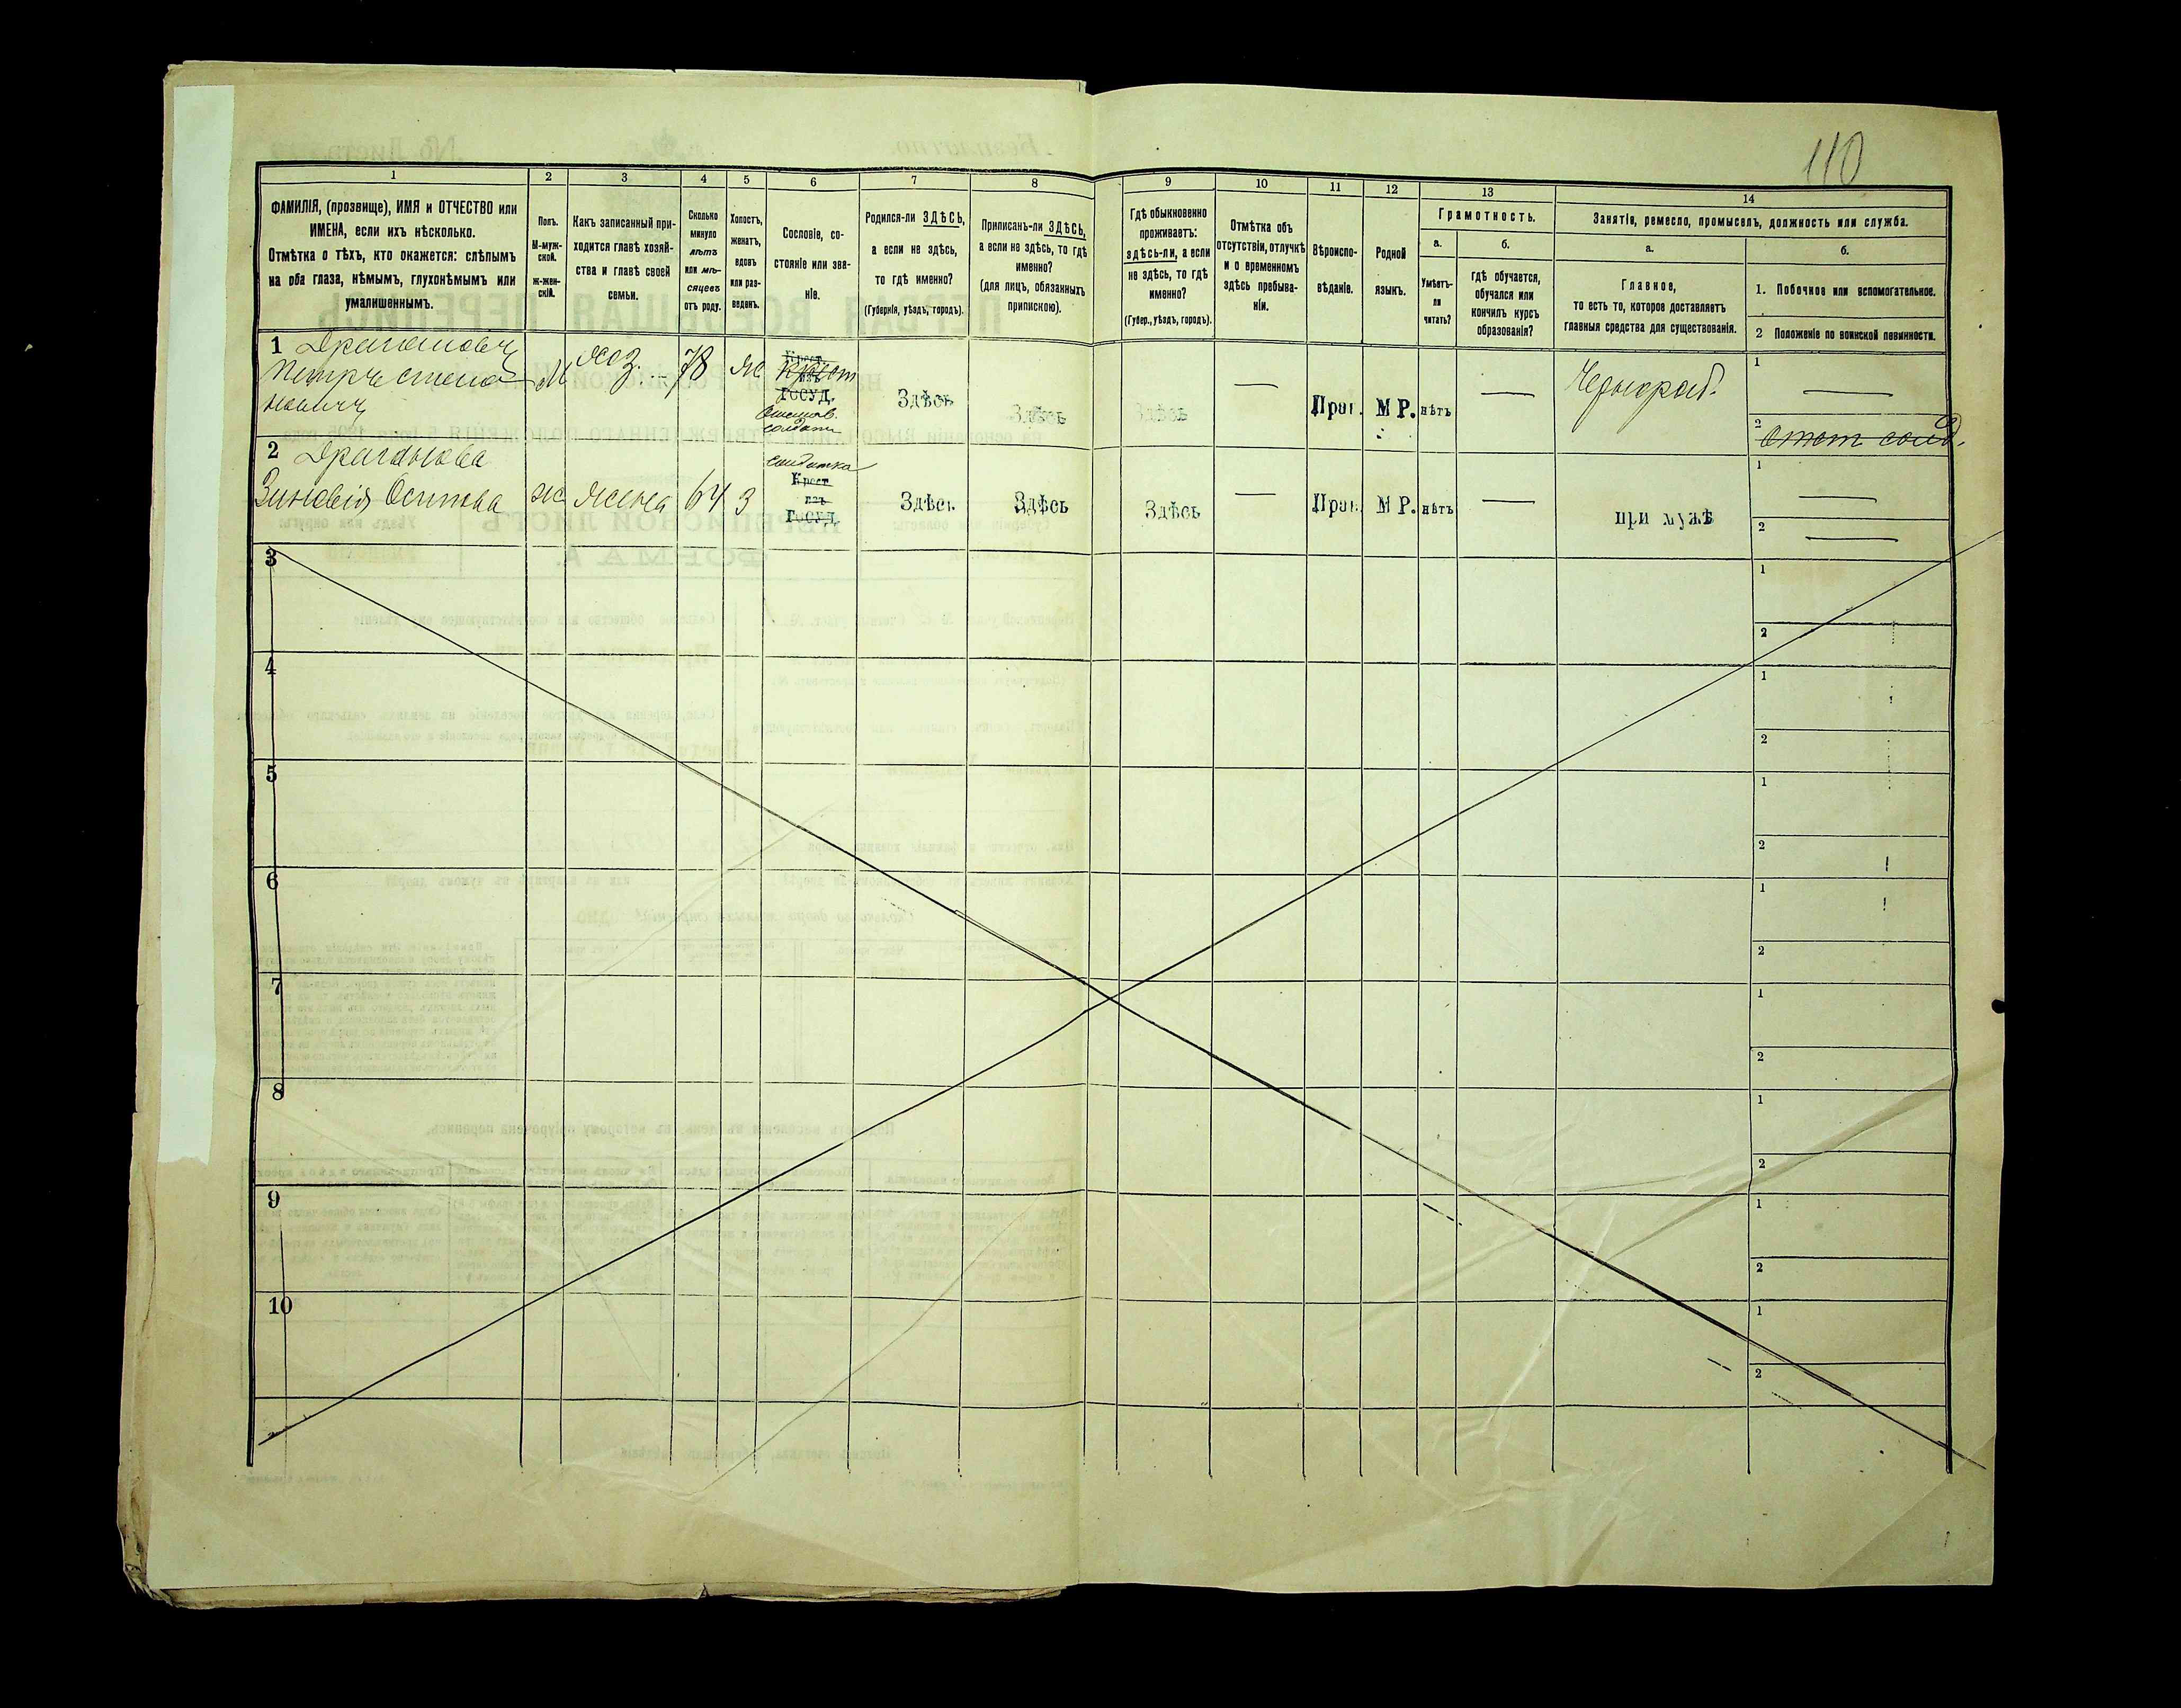 110
1
ФАМИЛІЯ, (прозвище), ИМЯ и ОТЧЕСТВО или
ИМЕНА, если ихъ нѣсколько.
Отмѣтка о тѣхъ, кто окажется: слѣпымъ
на оба глаза, нѣмымъ, глухонѣмымъ или
умалишеннымъ.
2
Полъ.
М-муж-
ской.
ж-жен-
скій.
3
Какъ записанный при-
ходится главѣ хозяй-
ства и главѣ своей
семьи.
4
Сколько
минуло
лѣтъ
или мѣ-
сяцевъ
отъ роду.
5
Холостъ,
женатъ,
вдовъ
или раз-
веденъ.
6
Сословіе, со-
стояніе или зва-
ніе.
7
Родился-ли ЗДѢСЬ,
а если не здѣсь,
то гдѣ именно?
(Губернія, уѣздъ, городъ).
8
Приписанъ-ли ЗДѢСЬ,
а если не здѣсь, то гдѣ
именно?
(для лицъ, обязанныхъ
припискою).
9
Гдѣ обыкновенно
проживаетъ:
здѣсь-ли, а если
не здѣсь, то гдѣ
именно?
(Губер., уѣздъ, городъ).
10
Отмѣтка объ
отсутствіи, отлучкѣ
и о временномъ
здѣсь пребыва-
ніи.
11
Вѣроиспо-
вѣданіе.
12
Родной
языкъ.
13
Грамотность.
а.
Умѣетъ-
ли
читать?
б.
гдѣ обучается,
обучался или
кончилъ курсъ
образованія?
14
Занятія, ремесло, промыселъ, должность или служба.
а.
Главное,
то есть то, которое доставляетъ
главныя средства для существованія.
б.
1. Побочное или вспомогательное.
2 Положеніе по воинской повинности.
1
Петръ
М
Хоз.
78
ж
Крест.
изъ
Госуд.
солдатъ
Здѣсь
Здѣсь
Здѣсь
—
Прав.
М Р.
нѣтъ
—
Чернораб.
1
—
2
2
Зиновія Осипова
ж
жена
64
З
солдатка
Крест
изъ
Госуд.
Здѣсь
Здѣсь
Здѣсь
—
Прав.
М Р.
нѣтъ
—
при мужѣ
1
—
2
—
3
1
2
4
1
2
5
1
2
6
1
2
7
1
2
8
1
2
9
1
2
10
1
2